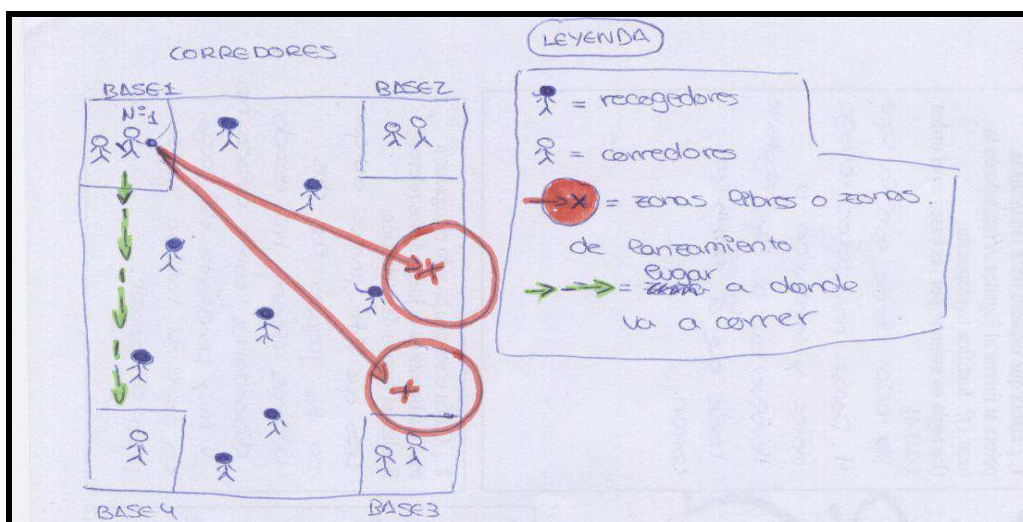 CORREDORES
BASE1
BASE2
Nº1
BASE4
BASE3
LEYENDA
= recogedores
= corredores
= zonas libres o zonas.
de lanzamiento
lugar
= a donde
va a correr